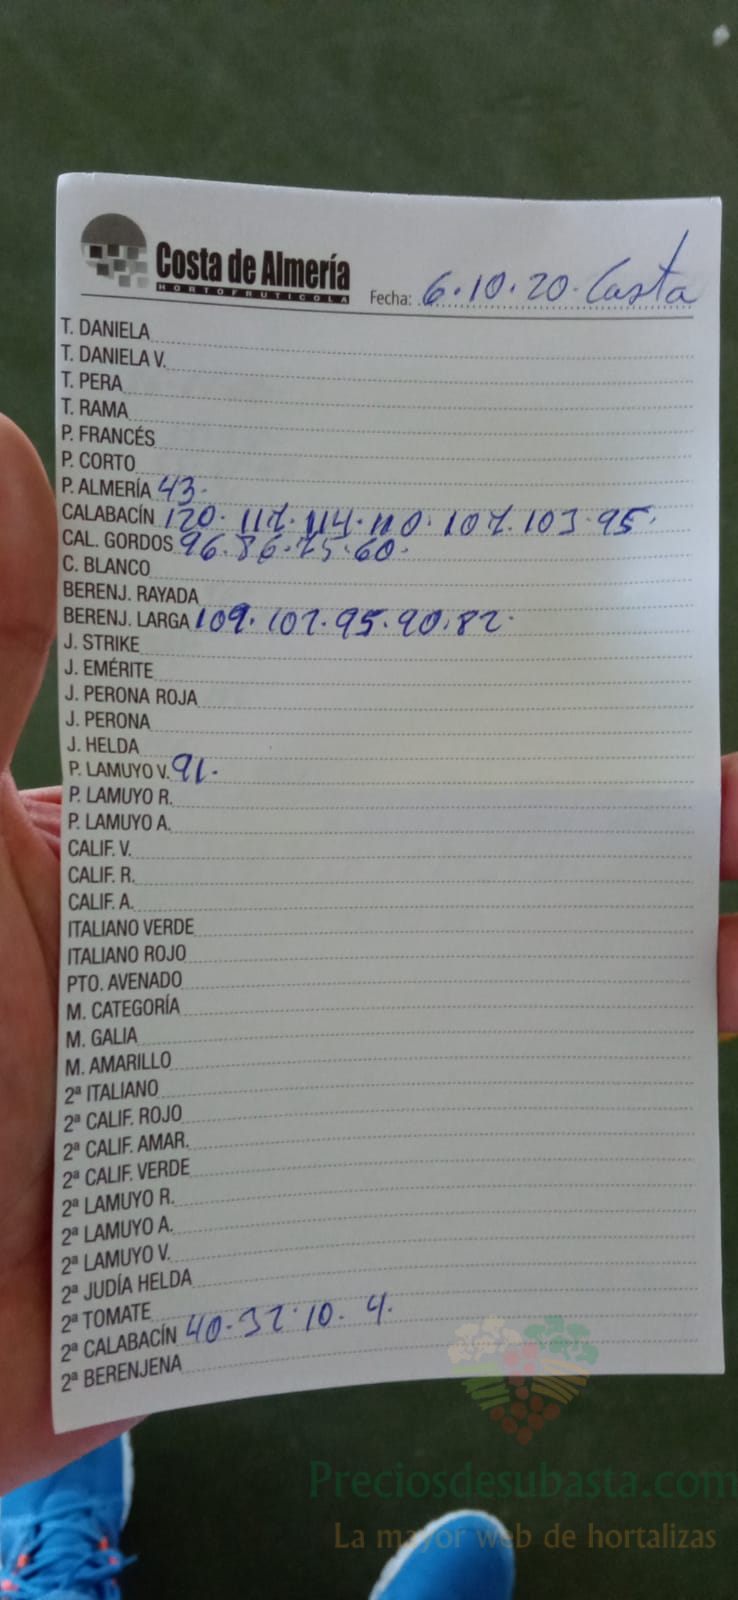 Costa de Almería
HORTOFRUTICOLA
Fecha: 6.10.20. Costa
T. DANIELA
T. DANIELA V.
T. PERA
T. RAMA
P. FRANCÉS
P. CORTO
P. ALMERÍA 43.
CALABACÍN 120. 117. 114. 110. 107. 103. 95.
CAL. GORDOS 96. 86. 75. 60.
C. BLANCO
BERENJ. RAYADA
BERENJ. LARGA 109. 107. 95. 90. 82.
J. STRIKE
J. EMÉRITE
J. PERONA ROJA
J. PERONA
J. HELDA
P. LAMUYO V. 91.
P. LAMUYO R.
P. LAMUYO A.
CALIF. V.
CALIF. R.
CALIF. A.
ITALIANO VERDE
ITALIANO ROJO
PTO. AVENADO
M. CATEGORÍA
M. GALIA
M. AMARILLO
2ª ITALIANO
2ª CALIF. ROJO
2ª CALIF. AMAR.
2ª CALIF. VERDE
2ª LAMUYO R.
2ª LAMUYO A.
2ª LAMUYO V.
2ª JUDÍA HELDA
2ª TOMATE
2ª CALABACÍN 40. 32. 10. 4.
2ª BERENJENA
Preciosdesubasta.com
La mayor web de hortalizas